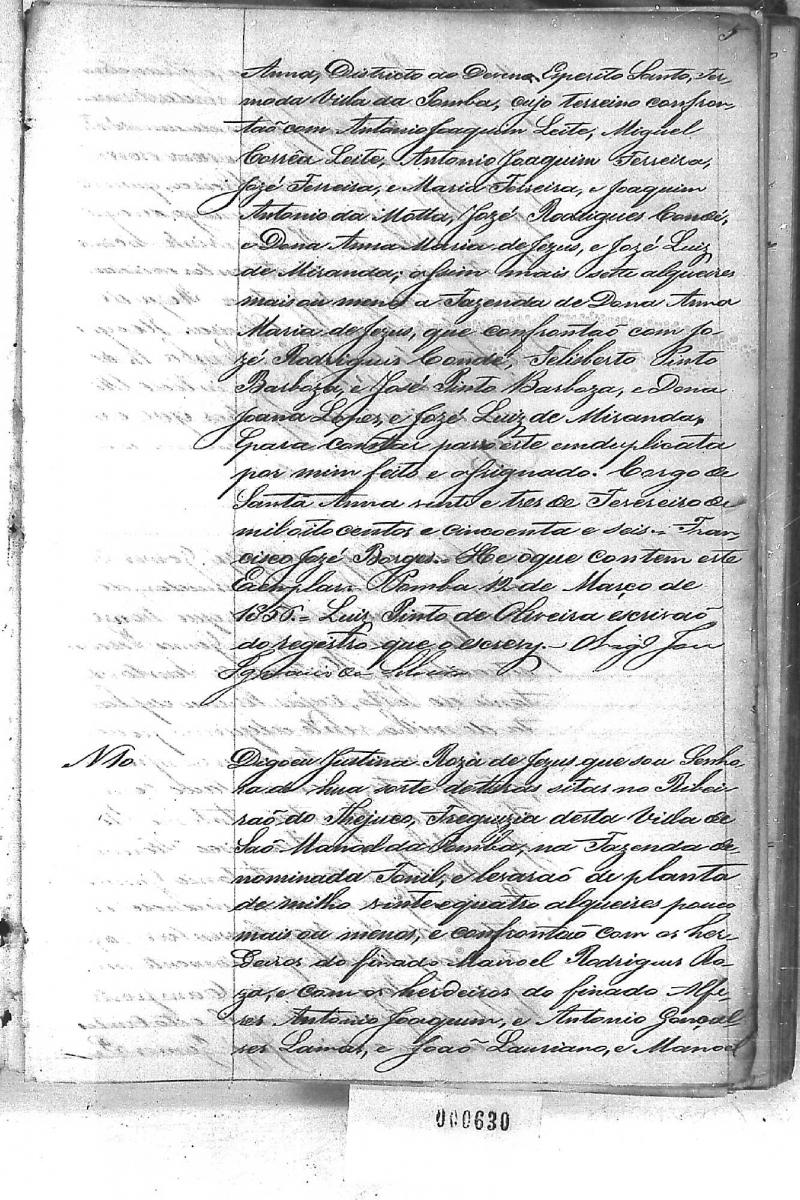 5
Anna, Districto do Devino Esperito Santo, Ter-
mo da Villa da Pomba, cujo terreino confron-
taõ com Antonio Joaquim Leite, Miguel
Corrêa Leite, Antonio Joaquim Ferreira,
Jozé Ferreira, e Maria Ferreira, e Joaquim
Antonio da Motta, Jozé Rodrigues Condé,
e Dona Anna Maria de Jezus, e Jozé Luiz
de Miranda; assim mais sete alqueires
mais ou menos a Fazenda de Dona Anna
Maria de Jezus, que confrontaõ com Jo-
zé Rodrigues Condé, Felisberto Pinto
Barboza, e José Pinto Barboza, e Dona
Joana Lopes, e Jozé Luiz de Miranda,
Epara constar passo este em duplicata
por mim feito e assignado. Corgo de
Santa Anna vinte e tres de Fevereiro de
mil oito centos e cincoenta e seis. Fran-
cisco Jozé Borges. He o que contem este
Exemplar. Pomba 12 de Março de
1856. Luiz Pinto de Oliveira escrivaõ
do registro que o escrevy.
N 10
Digo eu Justina Roza de Jezus que sou Senho-
ra de hua sorte de terras sitas no Ribei-
raõ do Thejuco, Freguezia desta Villa de
Saõ Manoel da Pomba, na Fazenda de-
nominada Tonil, e levaraõ de planta
de milho vinte e quatro alqueires pouco
mais ou menos, e confrontaõ com os her-
deiros do finado Manoel Rodrigues Ro-
za, e com os herdeiros do finado Alfe-
res Antonio Joaquim, e Antonio Gonçal
ves Lamas, e Joaõ Lauriano, e Manoel
000630